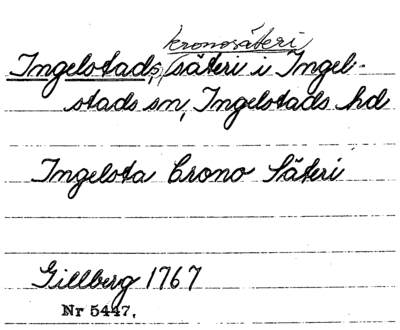 kronosäteri
Ingelstads, (säteri i Ingel-
stads sn, Ingelstads hd
Ingelsta Crono Säteri
Gillberg 1767
Nr 5447.